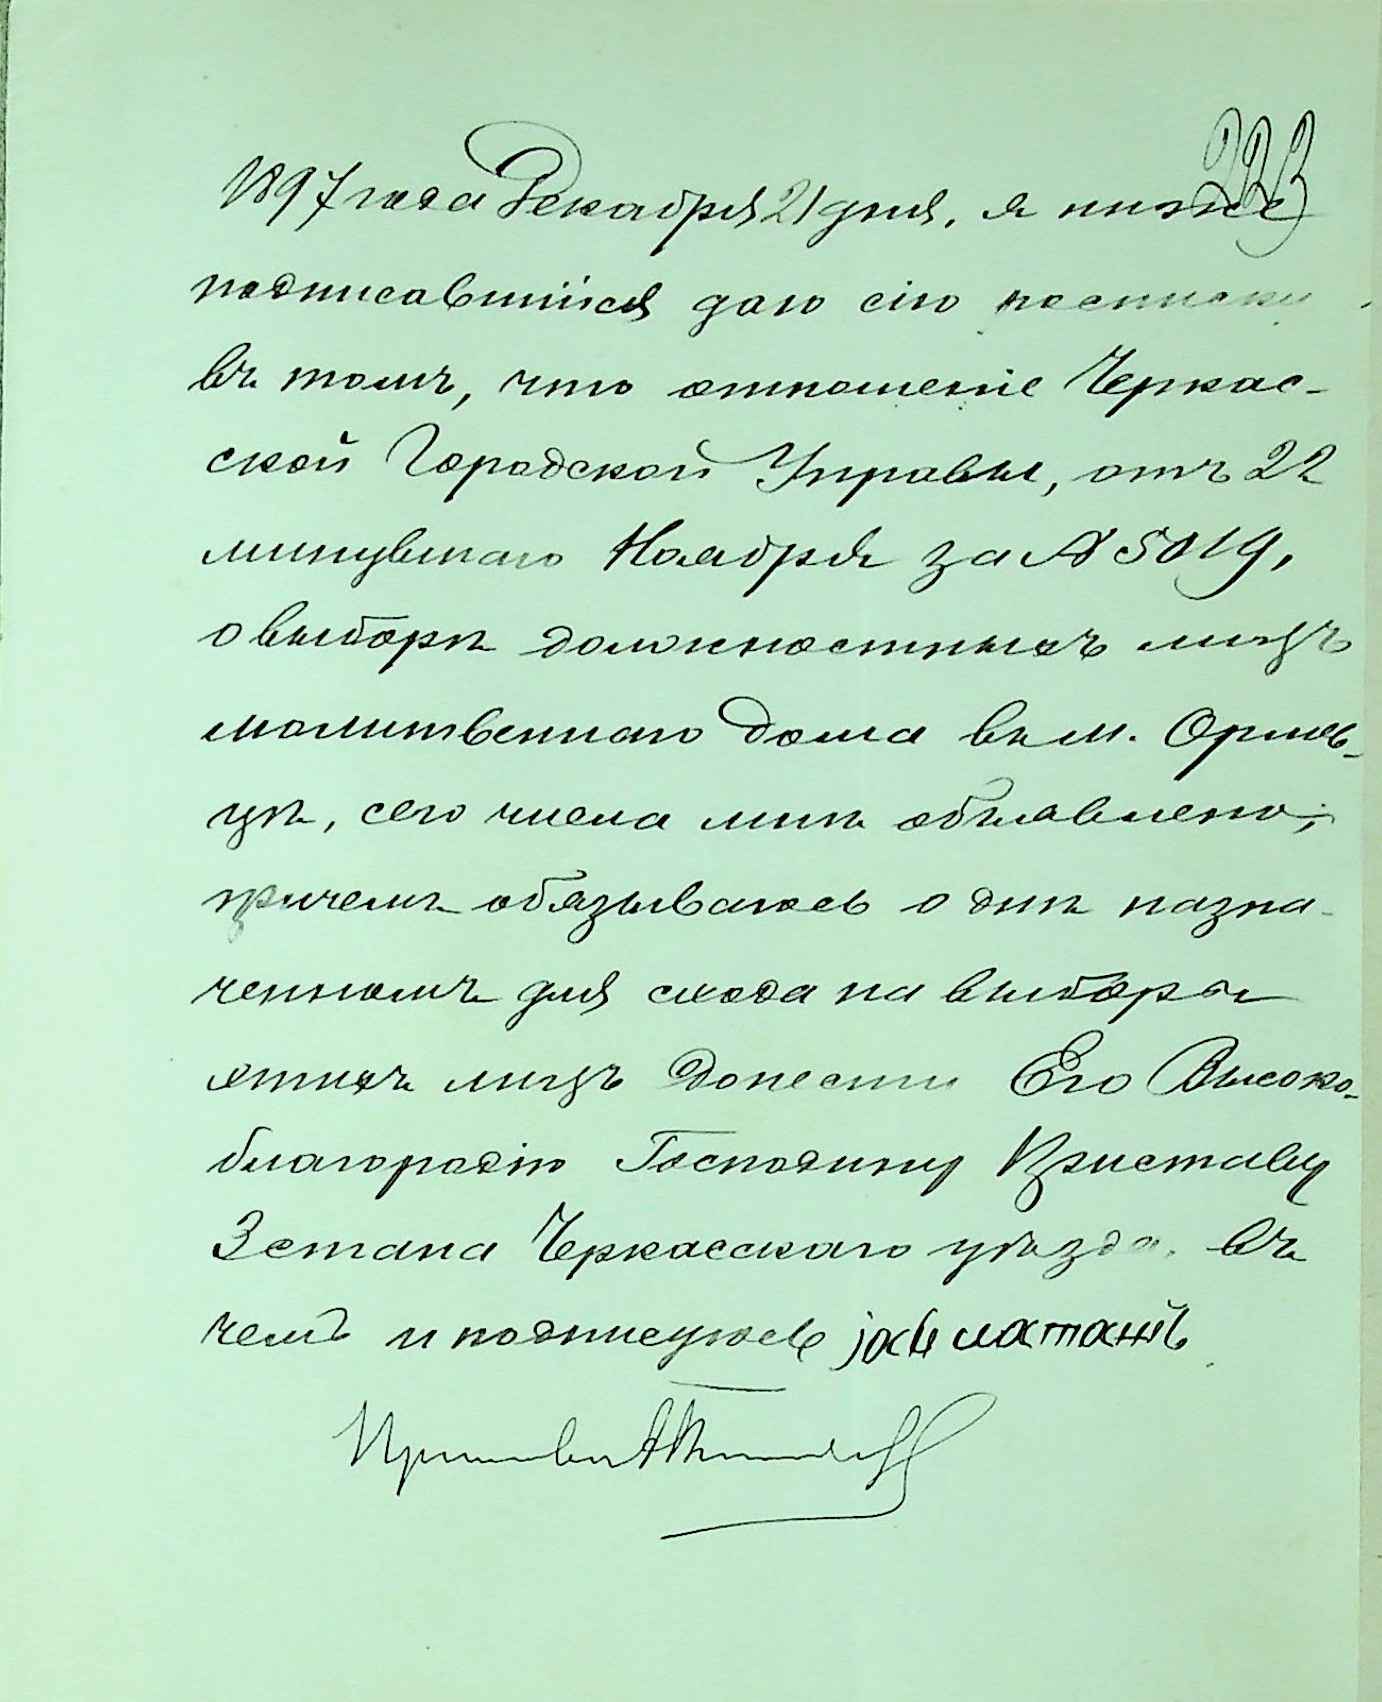 223
1897 года Декабря 21 дня, я ниже
подписавшійся даю сію росписку
въ томъ, что отношеніе Черкас-
ской Городской Управы, отъ 22
минувшаго Ноября за № 5019,
о выборѣ должностныхъ лицъ
молитвеннаго дома въ м. Орлов-
цѣ, сего числа мнѣ объявлено;
причемъ обязываюсь о днѣ назна-
ченномъ для схода на выборы
этихъ лицъ донести Его Высоко-
благородію Господину Приставу
3 стана Черкасскаго уѣзда, въ
чемъ и подписуюсь